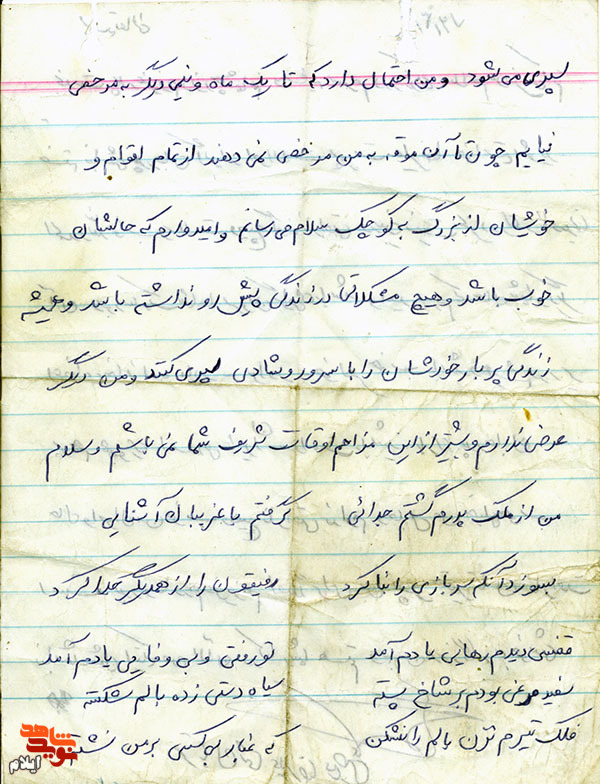 سپری می شود و من احتمال دارد که تا یک ماه و نیمی دیگر به مرخصی
نیایم چون تا آن موقع به من مرخصی نمی دهند از تمام اقوام و
خویشان از بزرگ به کوچک سلام می رسانم و امیدوارم که حالشان
خوب باشد و هیچ مشکلاتی در زندگی پیش رو نداشته باشد و همیشه
زندگی پر بار خودشان را با سرور و شادی سپری کنند و من دیگر
عرضی ندارم و بیشتر از این مزاحم اوقات شریف شما نمی باشم وسلام
من از ملک پدرم گشتم جدائی گرفتم با غریبان آشنایی
بسوزد آنکه سربازی را بنا کرد رفیقون را از همدیگر جدا کرد
قفسی دیدم رهایی یادم آمد تو رفتی و بی وفایی یادم آمد
سفید مرغی بودم بر شاخ پسته سیاه دستی زده بالم شکسته
فلک تیرم نزن بالم را نشکن که غبار بی کسی بر من نشسته
نوید شاهد
ایلام